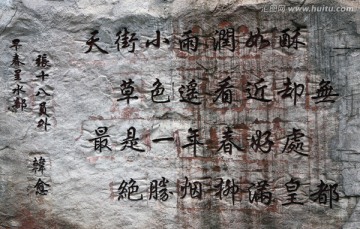 天街小雨潤如酥
草色遙看近却無
最是一年春好處
絶勝烟柳滿皇都
早春呈水部
張十八員外
韓愈
www.huitu.com